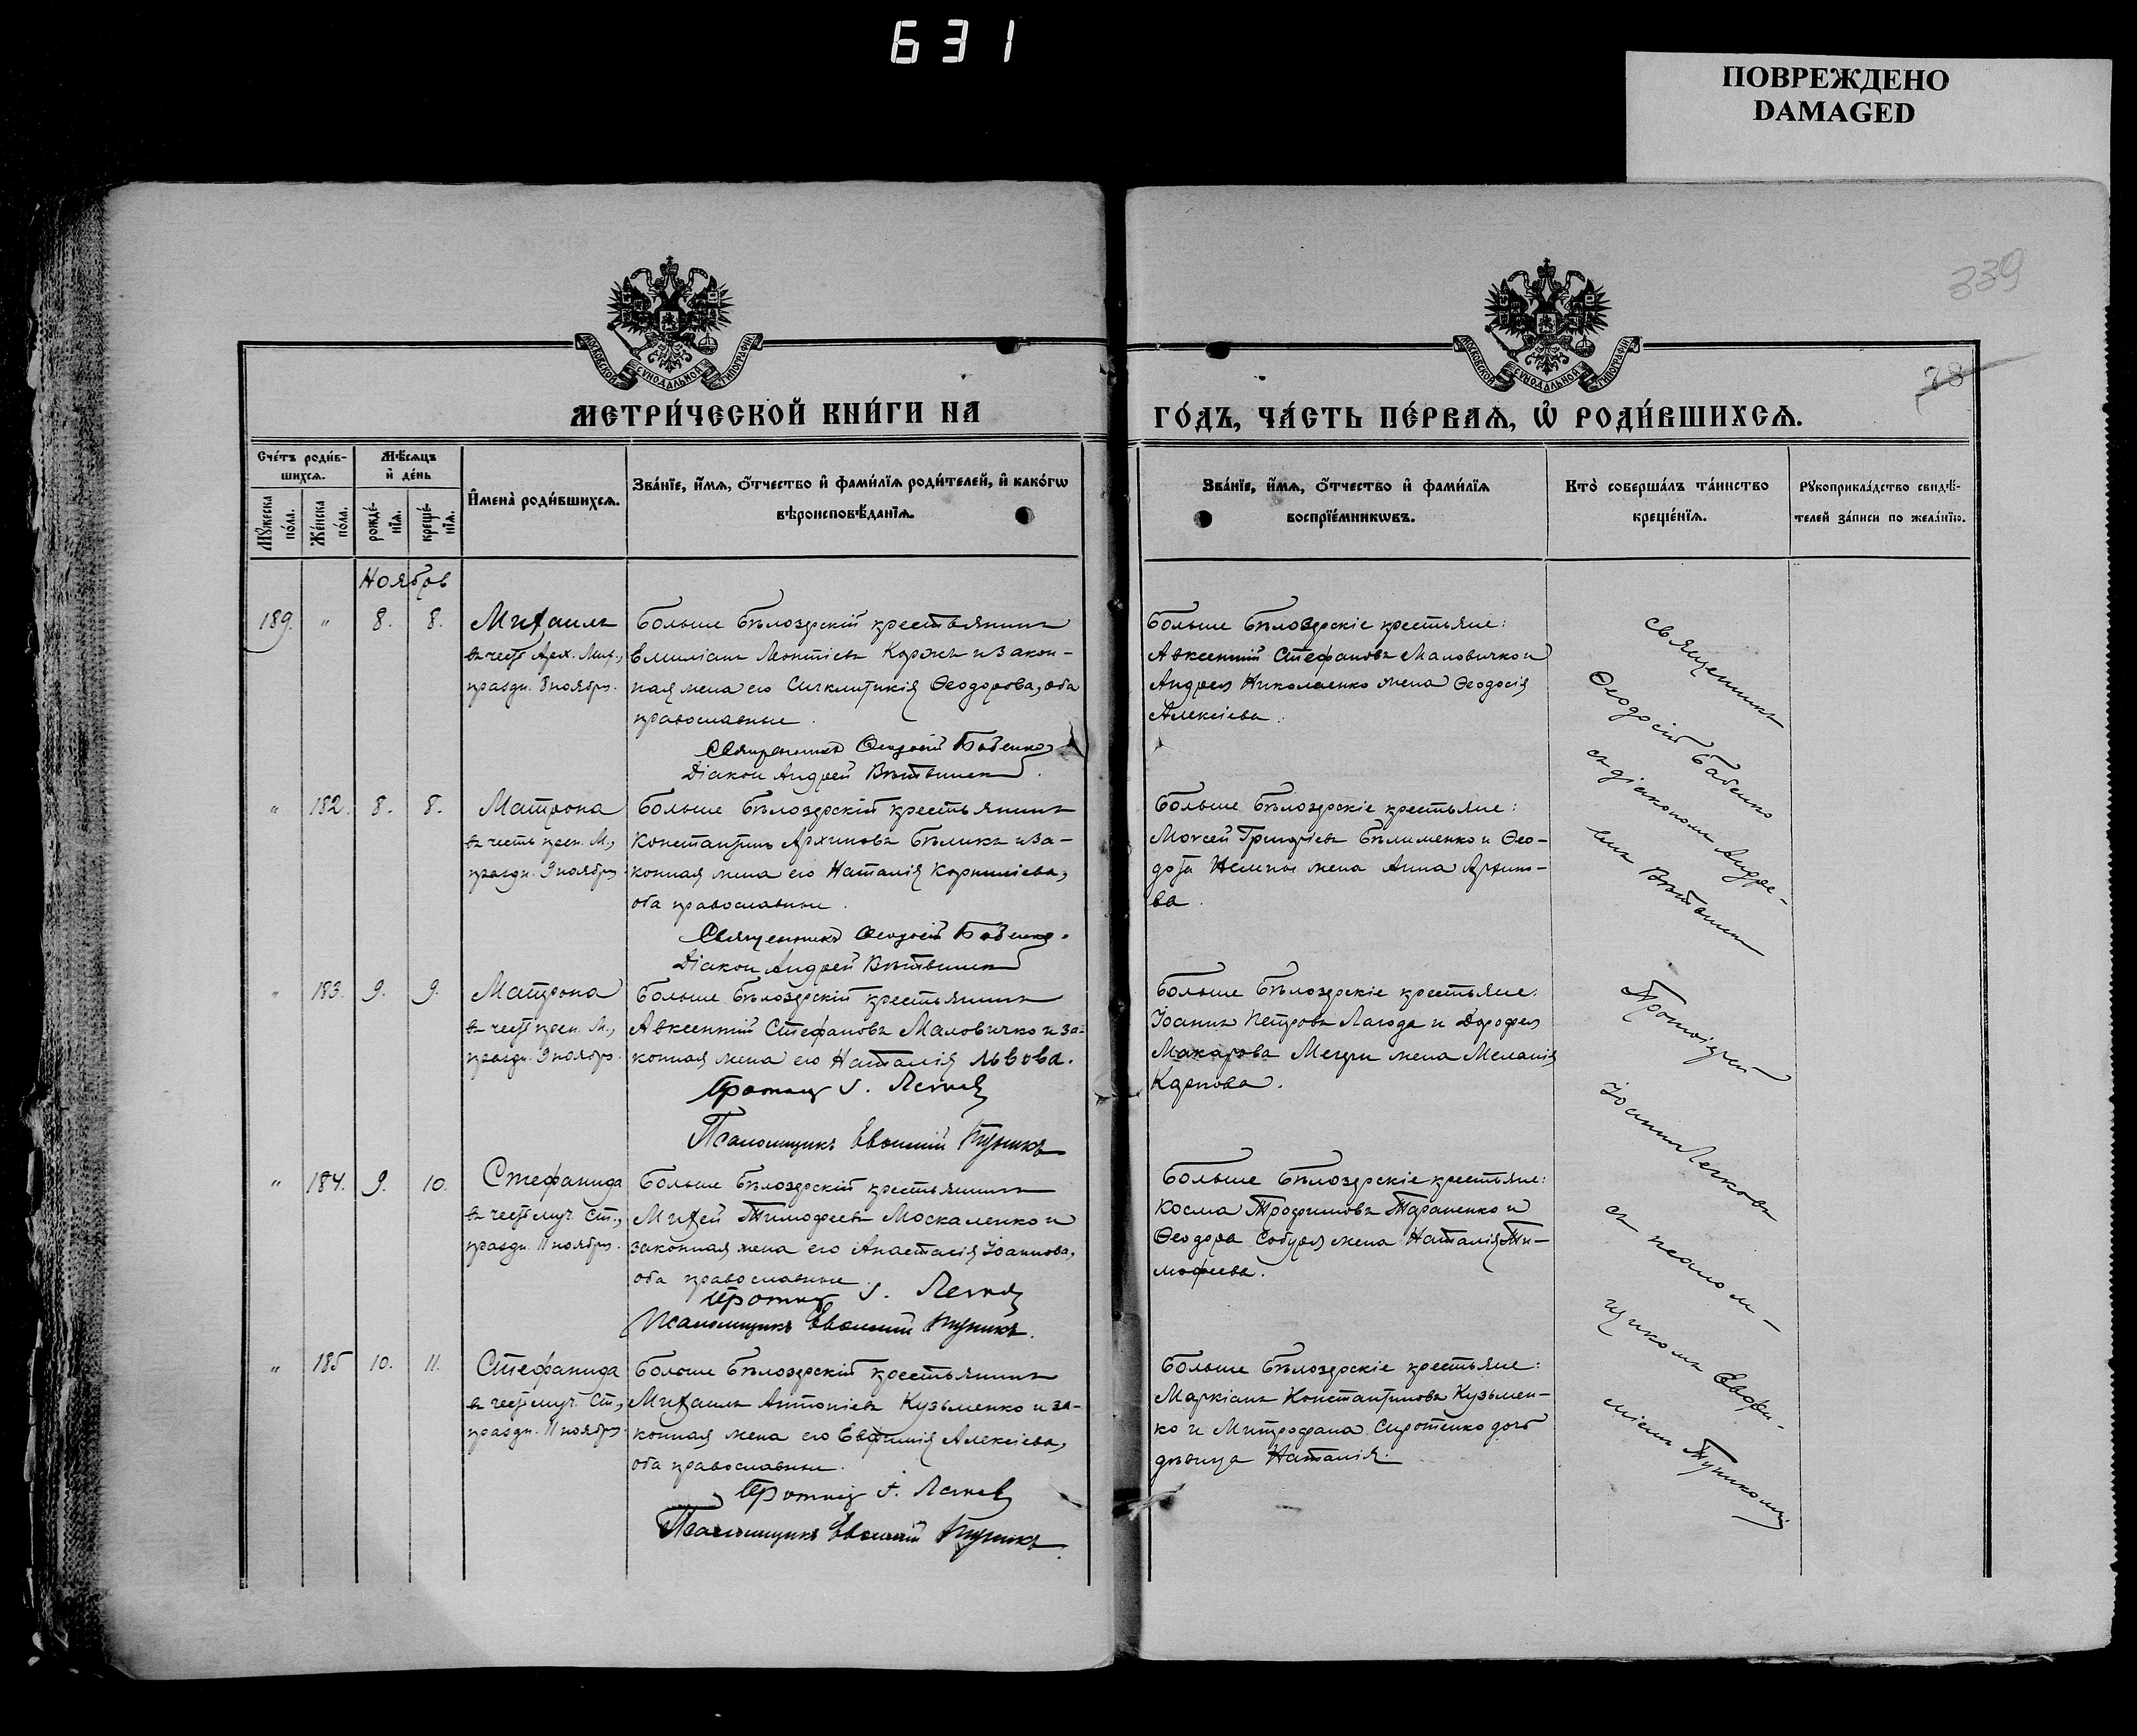 631
ПОВРЕЖДЕНО
DAMAGED
339
78
МОСКОВСКОЙ СѴНОДАЛЬНОЙ ТИПОГРАФІИ
МОСКОВСКОЙ СѴНОДАЛЬНОЙ ТИПОГРАФІИ
МЕТРИ́ЧЕСКОЙ КНИ́ГИ НА
ГО́ДЪ, ЧА́СТЬ ПЕ́РВАѦ, Ѡ РОДИ́ВШИХСѦ.
Сче́тъ роди́в-
шихсѧ.
Мꙋ́жеска
по́ла.
Же́нска
по́ла.
Мѣ́сѧцъ
и҆ де́нь
рожде́-
нїѧ.
креще́-
нїѧ.
И҆мена̀ роди́вшихсѧ.
Зва́нїе, и҆́мѧ, ѻ҆́тчество и҆ фами́лїѧ роди́телей, и҆ како́гѡ
вѣроисповѣ́данїѧ.
Зва́нїе, и҆́мѧ, ѻ҆́тчество и҆ фами́лїѧ
воспрїе́мникѡвъ.
Кто̀ соверша́лъ та́инство
креще́нїѧ.
Рꙋкоприкла́дство свидѣ́-
телей за́писи по жела́нїю.
Ноябрь
189. " 8. 8.
Михаилъ
въ честь Арх. Мих.,
праздн. 8 ноября.
Больше Бѣлозерскій крестьянинъ
Емиліанъ Контіевъ Коржъ и закон-
ная жена его Сигклитикія Ѳеодорова, оба
православные.
Священникъ Ѳеодосій Бабенко
Діаконъ Андрей
Больше Бѣлозерскіе крестьяне:
Авксентій Стефановъ Маловичко и
Андрея Николаенко жена Ѳеодосія
Алексіева.
Священникъ
Ѳеодосій Бабенко
съ діакономъ Андре-
емъ
" 182. 8. 8.
Матрона
въ честь преп. М.,
праздн. 9 ноября.
Больше Бѣлозерскій крестьянинъ
Константинъ Архиповъ Бѣликъ и за-
конная жена его Наталія Корниліева,
оба православные.
Священникъ Ѳеодосій Бабенко.
Діаконъ Андрей
Больше Бѣлозерскіе крестьяне:
Моисей Григоріевъ Бѣлименко и Ѳео-
дота жена Анна Архипо-
ва.
" 183. 9. 9.
Матрона
въ честь преп. М.,
праздн. 9 ноября.
Больше Бѣлозерскій крестьянинъ
Авксентій Стефановъ Маловичко и за-
конная жена его Наталія Львова.
Протоіер. І.
Псаломщикъ Евфимій Тупикъ
Больше Бѣлозерскіе крестьяне:
Іоаннъ Петровъ Лагода и Дорофея
Макарова жена Меланія
Карпова.
Протоіерей
Іоаннъ
съ псалом-
щикомъ Евфи-
міемъ Тупикомъ
" 184. 9. 10.
Стефанида
въ честь муч. Ст.,
праздн. 11 ноября.
Больше Бѣлозерскій крестьянинъ
Михей Тимофеевъ Москаленко и
законная жена его Анастасія Іоаннова,
оба православные.
Протоіер. І.
Псаломщикъ Евфимій Тупикъ.
Больше Бѣлозерскіе крестьяне:
Косма Трофимовъ Тараненко и
Ѳеодора Собуря жена Наталія Ти-
мофеева.
" 185 10. 11.
Стефанида
въ честь муч. Ст.,
праздн. 11 ноября.
Больше Бѣлозерскій крестьянинъ
Михаилъ Антоніевъ Кузьменко и за-
конная жена его Евфимія Алексіева,
оба православные.
Протоіер. І.
Псаломщикъ Евфимій Тупикъ.
Больше Бѣлозерскіе крестьяне:
Маркіанъ Константиновъ Кузьмен-
ко и Митрофана Сиротенко дочь
дѣвица Наталія.